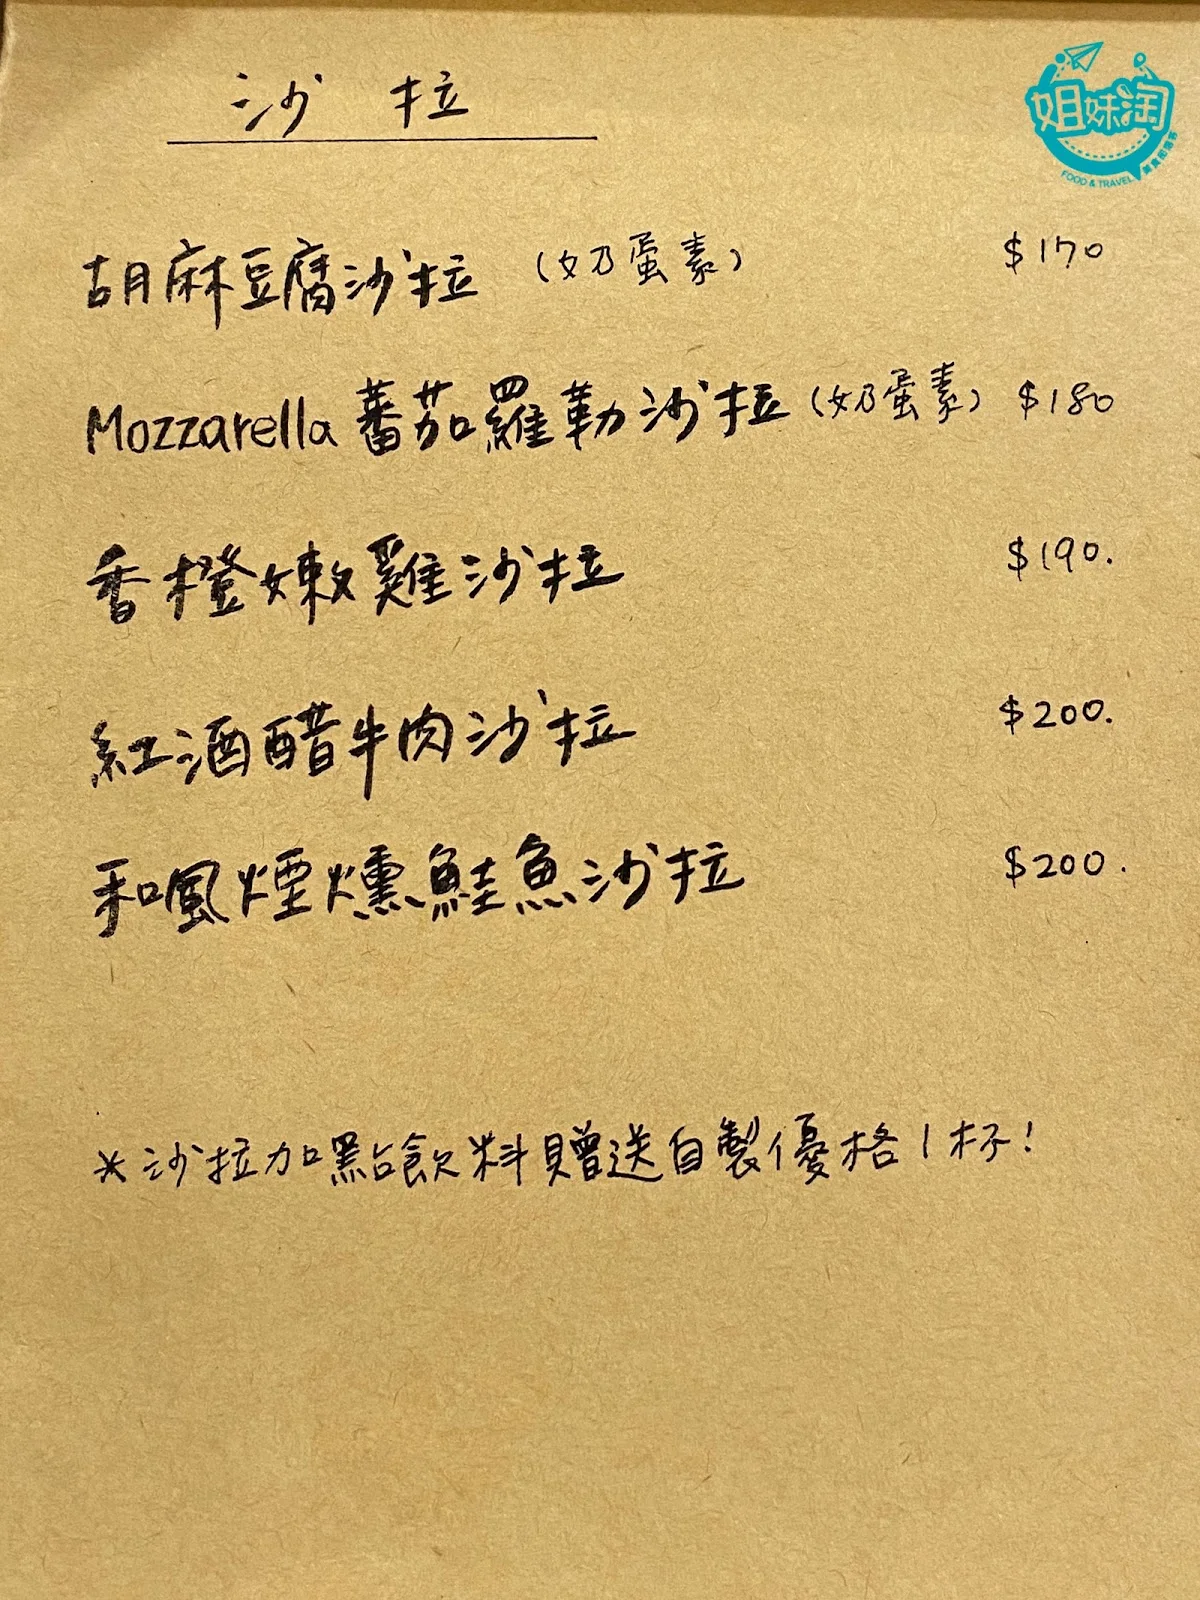 沙 拉
姐妹淘
FOOD & TRAVEL
胡麻豆腐沙拉 (奶蛋素) $170
Mozzarella 蕃茄羅勒沙拉 (奶蛋素) $180
香橙嫩雞沙拉 $190.
紅酒醋牛肉沙拉 $200.
和風煙燻鮭魚沙拉 $200.
*沙拉加點飲料贈送自製優格1杯!